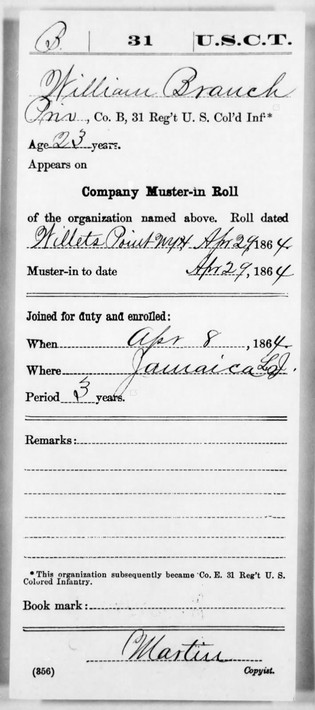 B | 31 | U.S.C.T.
William Branch
Priv, Co. B, 31 Reg't U. S. Col'd Inf.*
Age 23 years.
Appears on
Company Muster-in Roll
of the organization named above. Roll dated
Willets Point N.Y.H Apr 29, 1864
Muster-in to date Apr 29, 1864
Joined for duty and enrolled:
When Apr 8, 1864
Where Jamaica L.I.
Period 3 years.
Remarks:
*This organization subsequently became Co. E. 31 Reg't U. S.
Colored Infantry.
Book mark:
Martin
(356) Copyist.